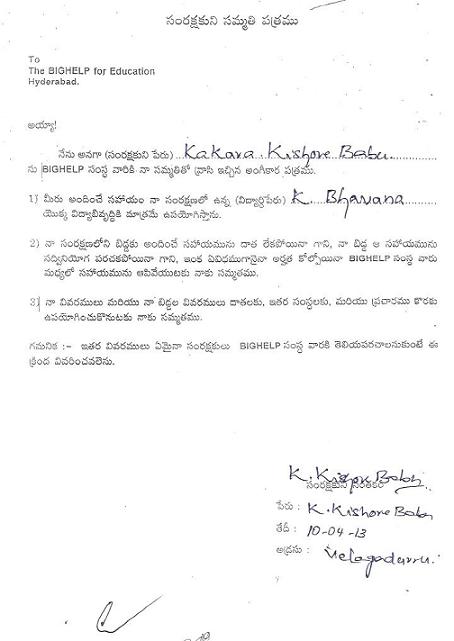 సంరక్షకుని సమ్మతి పత్రము
To
The BIGHELP for Education
Hyderabad.
అయ్యా!
నేను అనగా (సంరక్షకుని పేరు) Kakara Kishore Babu
ను BIGHELP సంస్థ వారికి నా సమ్మతితో వ్రాసి ఇచ్చిన అంగీకార పత్రము.
1) మీరు అందించే సహాయం నా సంరక్షణలో ఉన్న (విద్యార్థిపేరు) K. Bhavana
యొక్క విద్యాభివృద్ధికి మాత్రమే ఉపయోగిస్తాను.
2) నా సంరక్షణలోని బిడ్డకు అందించే సహాయమును దాత లేకపోయినా గాని, నా బిడ్డ ఆ సహాయమును
సద్వినియోగ పరచకపోయినా గాని, ఇంక ఏవిధముగానైనా అర్హత కోల్పోయినా BIGHELP సంస్థ వారు
మధ్యలో సహాయమును ఆపివేయుటకు నాకు సమ్మతము.
3) నా వివరములు మరియు నా బిడ్డల వివరములు దాతలకు, ఇతర సంస్థలకు, మరియు ప్రచారము కొరకు
ఉపయోగించుకొనుటకు నాకు సమ్మతము.
గమనిక :- ఇతర వివరములు ఏమైనా సంరక్షకులు BIGHELP సంస్థ వారికి తెలియపరచాలనుకుంటే ఈ
క్రింద వివరించవలెను.
K. Kishore Babu
సంరక్షకుని సంతకం
పేరు : K. Kishore Babu
తేదీ : 10-04-13
అడ్రసు :